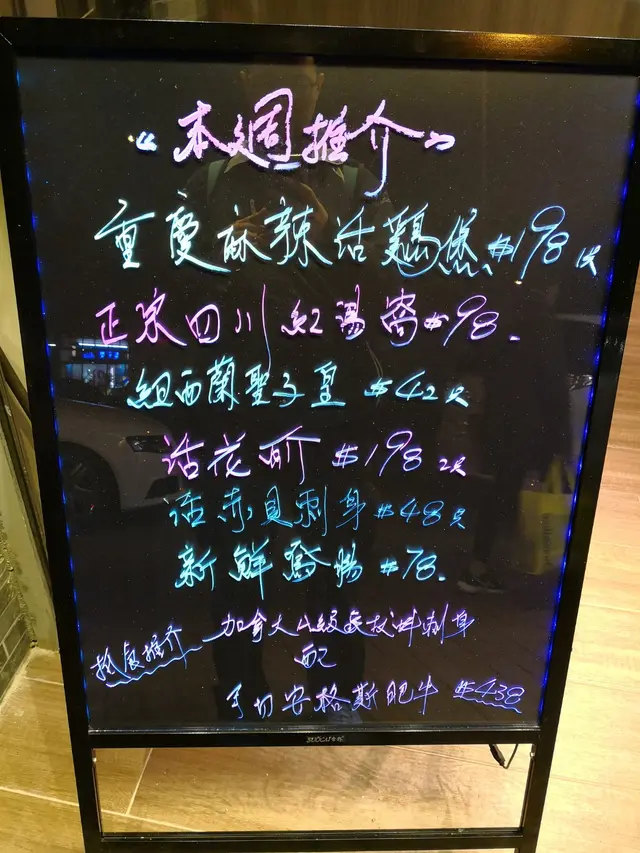 《本週推介》
重慶麻辣活鷄煲 $198 隻
正宗四川紅湯窩 $98.
紐西蘭聖子皇 $42 隻
活花𧊅 $198 2隻
活赤貝刺身 $48 隻
新鮮鵞腸 $78.
推介 加拿大A級象拔蚌刺身
配
手切安格斯肥牛 $438